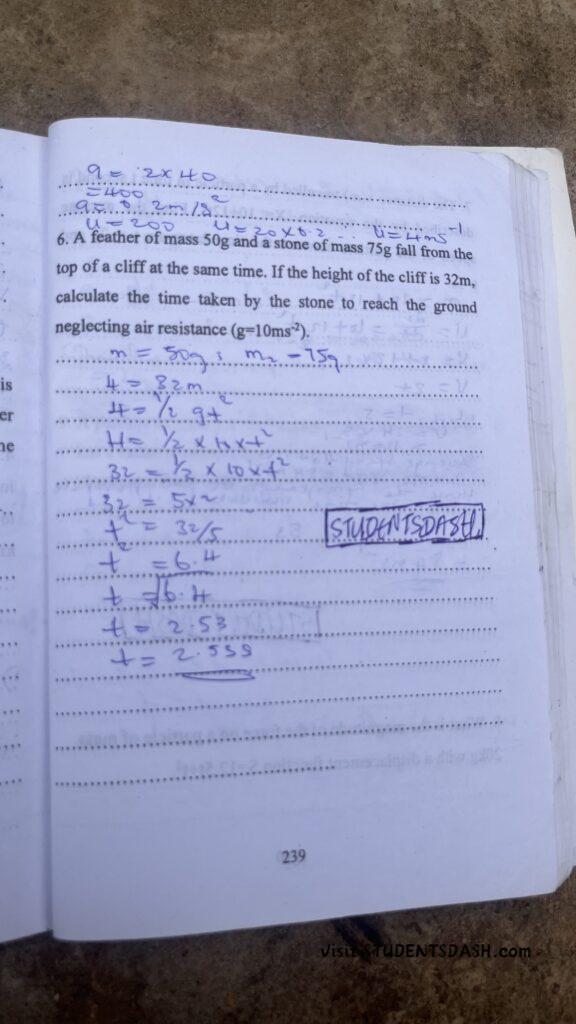 a = 2x40
=400
a= 0.2m/s²
u = 200 u = 20x0.2 ... u=4ms⁻¹
6. A feather of mass 50g and a stone of mass 75g fall from the
top of a cliff at the same time. If the height of the cliff is 32m,
calculate the time taken by the stone to reach the ground
neglecting air resistance (g=10ms⁻²).
m = 50g; m₂ = 75g
H = 32m
H = ½ gt²
H = ½ x 10xt²
32 = ½ x 10xt²
32 = 5x²
t² = 32/5
t² = 6.4
t = √6.4
t = 2.53
t = 2.53s
STUDENTSDASH.
239
Visit STUDENTSDASH.com
is
er
ne